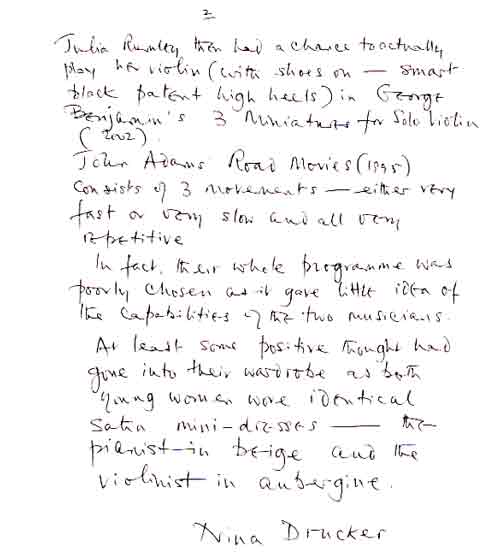 2
Julia Rumley then had a chance to actually
play her violin (with shoes on — smart
black patent high heels) in George
Benjamin's 3 Miniatures for Solo Violin
(2002).
John Adams Road Movies (1995)
Consists of 3 movements — either very
fast or very slow and all very
repetitive
In fact, their whole programme was
poorly chosen as it gave little idea of
the capabilities of the two musicians.
At least some positive thought had
gone into their wardrobe as both
young women wore identical
satin mini-dresses — the
pianist in beige and the
violinist in aubergine.
Nina Drucker